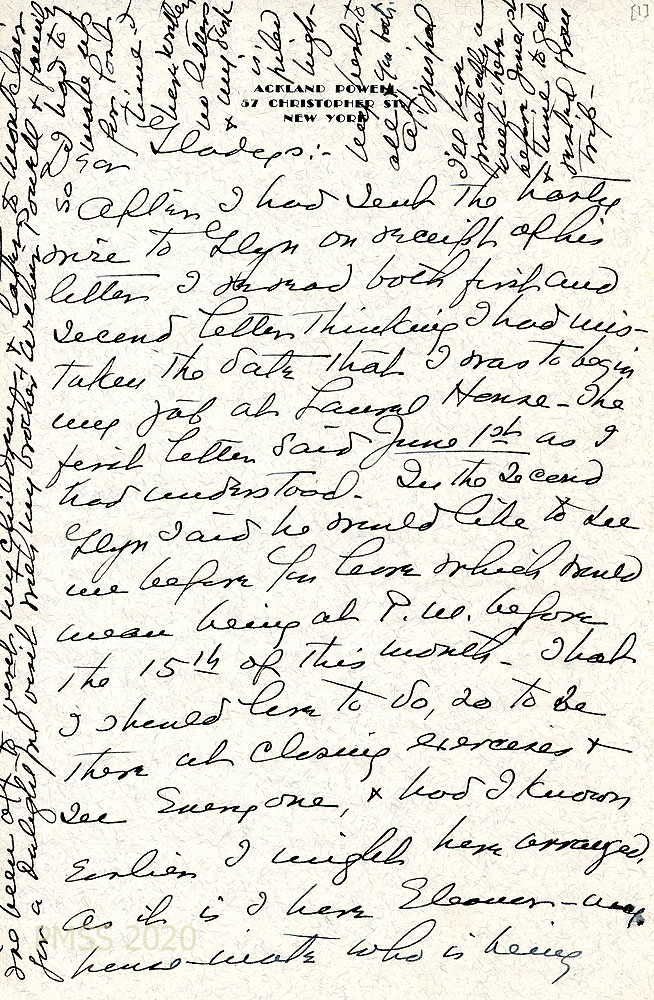 [1]
ACKLAND POWELL
57 CHRISTOPHER ST.
NEW YORK
Dear Gladys:-
So After I had sent the hasty
wire to Glyn on receipt of his
letter I reread both first and
second letter thinking I had mis-
taken the date that I was to begin
my job at Laurel House - The
first letter said June 1st as I
had understood. In the second
Glyn said he would like to see
me before you leave which would
mean being at P.M. before
the 15th of this month - That
I should love to do, so to be
there at closing exercises +
see Everyone, + had I known
Earlier I might have arranged,
as it is I have Eleanor - my
house-mate who is being
I've been off to visit my children + later to Montclair
for a delightful visit with my brother Archer Powell + family
So had to
make up
for lost
time I
have written
no letters
+ my desk
is
piled
high -
best to
all you both
at
I'll have
practically a
week here
before June 1st
+ time to get
rested from
trip -
PMSS 2020